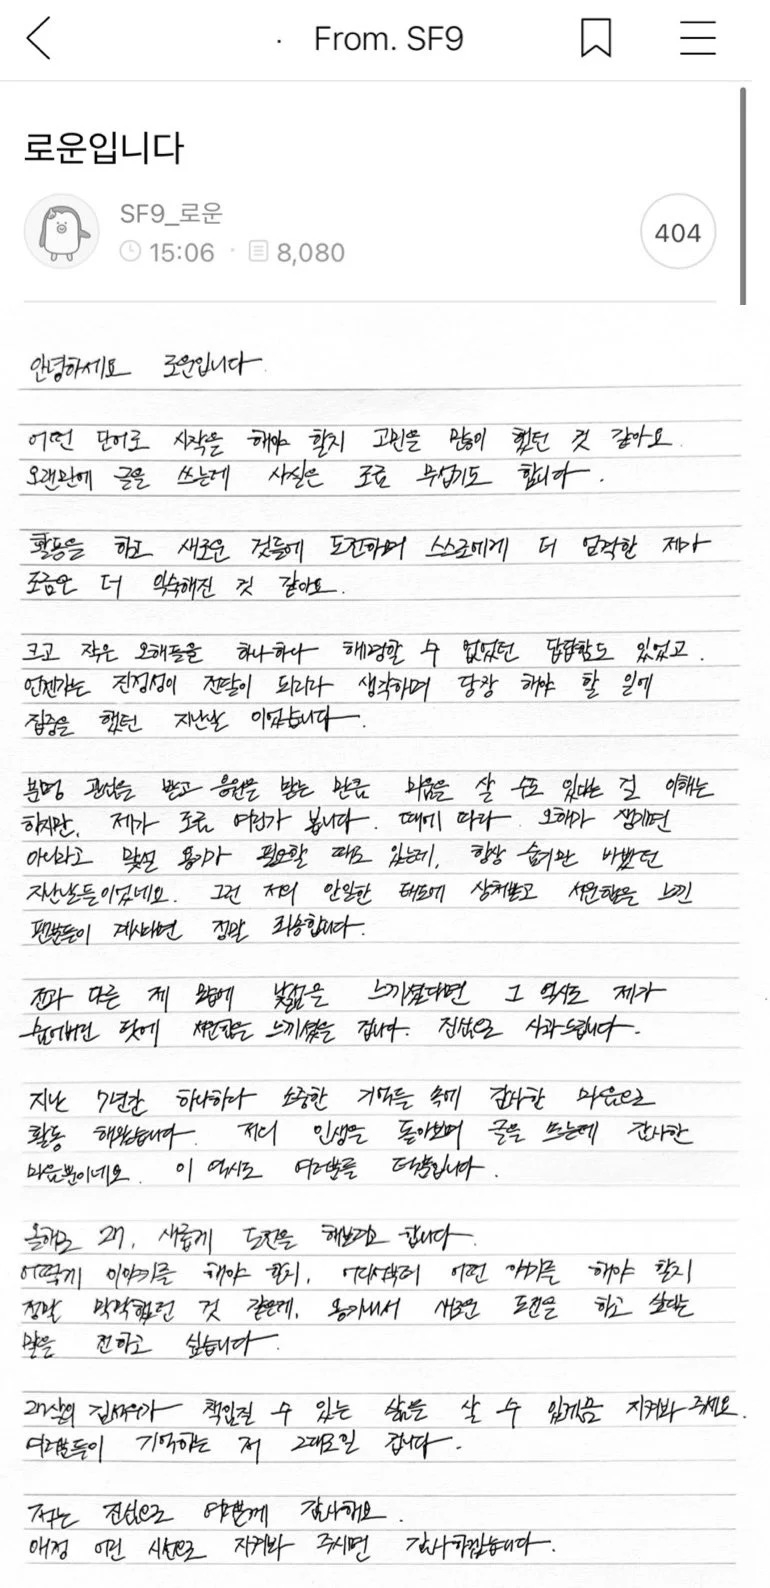 From. SF9
로운입니다
SF9_로운
15:06 · 8,080
404
안녕하세요 로운입니다.
어떤 단어로 시작을 해야 할지 고민을 많이 했던 것 같아요.
오랜만에 글을 쓰는데 사실은 조금 무섭기도 합니다.
활동을 하고 새로운 것들에 도전하며 스스로에게 더 엄격한 제가
조금은 더 익숙해진 것 같아요.
크고 작은 오해들을 하나하나 해명할 수 없었던 답답함도 있었고.
언젠가는 진정성이 전달이 되리라 생각하며 당장 해야 할 일에
집중을 했던 지난날 이었습니다.
분명 관심을 받고 응원을 받는 만큼 미움을 살 수도 있다는 걸 이해는
하지만, 제가 조금 여린가 봅니다. 때에 따라 오해가 생기면
아니라고 맞설 용기가 필요할 때도 있는데, 항상 숨기만 바빴던
지난날들이었네요. 그런 저의 안일한 태도에 상처받고 서운함을 느낀
팬분들이 계시다면 정말 죄송합니다.
전과 다른 제 모습에 낯섦을 느끼셨다면 그 역시도 제가
숨어버린 탓에 서운함을 느끼셨을 겁니다. 진심으로 사과드립니다.
지난 7년간 하나하나 소중한 기억들 속에 감사한 마음으로
활동 해왔습니다. 저의 인생을 돌아보며 글을 쓰는데 감사한
마음뿐이네요. 이 역시도 여러분들 덕분입니다.
올해로 27, 새롭게 도전을 해보려고 합니다.
어떻게 이야기를 해야 할지, 어디서부터 어떤 얘기를 해야 할지
정말 막막했던 것 같은데, 용기내서 새로운 도전을 하고 싶다는
말을 전하고 싶습니다.
27살의 김석우가 책임질 수 있는 삶을 살 수 있게끔 지켜봐 주세요.
여러분들이 기억하는 저 그대로일 겁니다.
저는 진심으로 여러분께 감사해요.
애정 어린 시선으로 지켜봐 주시면 감사하겠습니다.